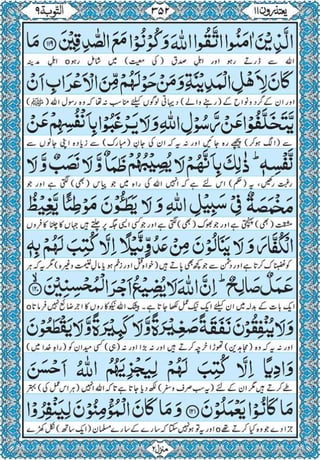 التوبة ۹ ۳۵۲ يعتذرون ۱۱
الَّذِيْنَ اٰمَنُوا اتَّقُوا اللّٰهَ وَكُوْنُوْا مَعَ الصّٰدِقِيْنَ ﴿۱۱۹﴾ مَا
اللہ سے ڈرتے رہو اور اہلِ صدق (کی معیت) میں شامل رہو اہلِ مدینہ
كَانَ لِاَهْلِ الْمَدِيْنَةِ وَمَنْ حَوْلَهُمْ مِّنَ الْاَعْرَابِ اَنْ
اور ان کے گرد و نواح کے (رہنے والے) دیہاتی لوگوں کیلئے مناسب نہ تھا کہ وہ رسول اللہ (ﷺ)
يَّتَخَلَّفُوْا عَنْ رَّسُوْلِ اللّٰهِ وَلَا يَرْغَبُوْا بِاَنْفُسِهِمْ عَنْ
سے (الگ ہو کر) پیچھے رہ جائیں اور نہ یہ کہ ان کی جانِ (مبارک) سے زیادہ اپنی جانوں سے
نَّفْسِهٖ ؕ ذٰلِكَ بِاَنَّهُمْ لَا يُصِيْبُهُمْ ظَمَاٌ وَّلَا نَصَبٌ وَّلَا
رغبت رکھیں، یہ (حکم) اس لئے ہے کہ انہیں اللہ کی راہ میں جو پیاس (بھی) لگتی ہے اور جو
مَخْمَصَةٌ فِيْ سَبِيْلِ اللّٰهِ وَلَا يَطَـُٔوْنَ مَوْطِئًا يَّغِيْظُ
مشقت (بھی) پہنچتی ہے اور جو بھوک (بھی) لگتی ہے اور جو کسی ایسی جگہ پر چلتے ہیں جہاں کا چلنا کافروں
الْكُفَّارَ وَلَا يَنَالُوْنَ مِنْ عَدُوٍّ نَّيْلًا اِلَّا كُتِبَ لَهُمْ بِهٖ
کو غضبناک کرتا ہے اور دشمن سے جو کچھ بھی پاتے ہیں (خواہ قتل اور زخم ہو یا مالِ غنیمت وغیرہ) مگر یہ کہ ہر
عَمَلٌ صَالِحٌ ؕ اِنَّ اللّٰهَ لَا يُضِيْعُ اَجْرَ الْمُحْسِنِيْنَ ﴿۱۲۰﴾
ایک بات کے بدلہ میں ان کیلئے ایک نیک عمل لکھا جاتا ہے۔ بیشک اللہ نیکوکاروں کا اجر ضائع نہیں فرماتا
وَلَا يُنْفِقُوْنَ نَفَقَةً صَغِيْرَةً وَّلَا كَبِيْرَةً وَّلَا يَقْطَعُوْنَ
اور نہ یہ کہ وہ (مجاہدین) تھوڑا خرچہ کرتے ہیں اور نہ بڑا اور نہ (ہی) کسی میدان کو (راہِ خدا میں)
وَادِيًا اِلَّا كُتِبَ لَهُمْ لِيَجْزِيَهُمُ اللّٰهُ اَحْسَنَ
طے کرتے ہیں مگر ان کے لئے (یہ سب صرف و سفر) لکھ دیا جاتا ہے تاکہ اللہ انہیں (ہر اس عمل کی) بہتر
مَا كَانُوْا يَعْمَلُوْنَ ﴿۱۲۱﴾ وَمَا كَانَ الْمُؤْمِنُوْنَ لِيَنْفِرُوْا
جزا دے جو وہ کیا کرتے تھے اور یہ تو ہو نہیں سکتا کہ سارے کے سارے مسلمان (ایک ساتھ) نکل کھڑے
منزل ۲